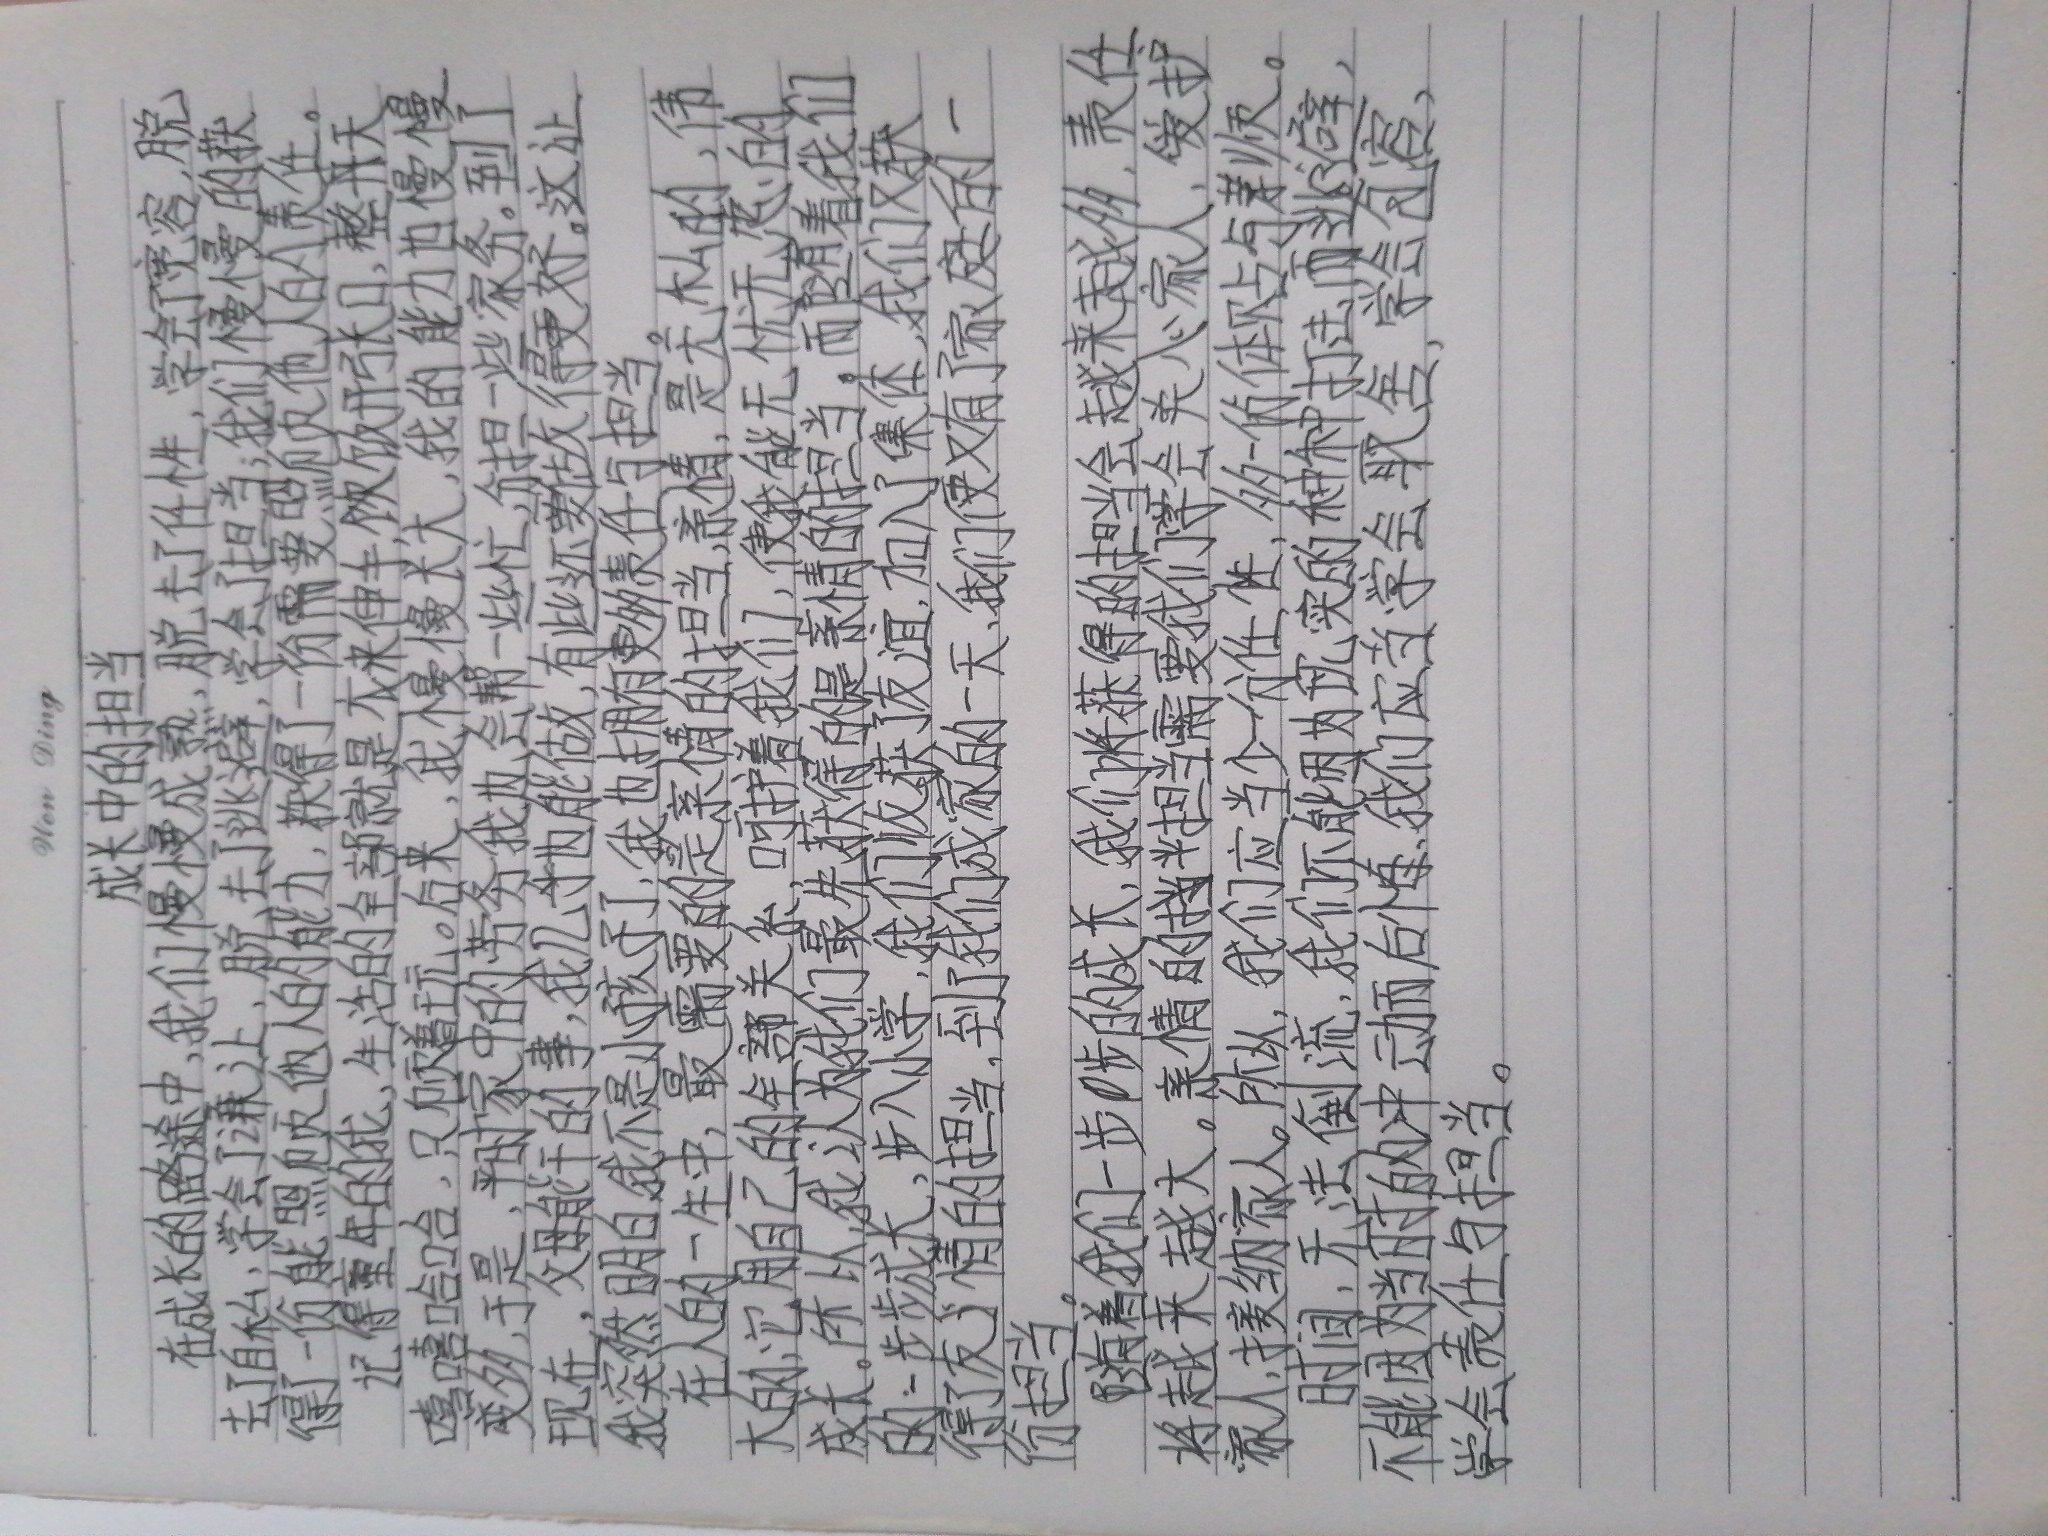 Wen Ding
成长中的担当
在成长的路途中，我们慢慢成熟，脱去了任性，学会了宽容，脱
去了自私，学会了谦让，脱去了逃避，学会了担当；我们慢慢的获
得了一份能照顾他人的能力，获得了一份需要照顾他人的责任。
记得童年的我，生活的全部就是衣来伸手饭饭开张口，整开天
嘻嘻哈哈，只顾嬉玩。后来，我慢慢长大，我的能力也慢慢
变多，于是，平时家中的劳务我也会帮一些忙，分担一些家务。到了
现在，父母能干的事，我几乎也能做，有些还要做得更好。这让
我突然明白，我不是小孩子了，我也拥有更多责任与担当。
在人的一生中，最需要的是亲情的担当，亲情，是无私的，伟
大的，它用自己的全部关怀，呵护着我们，使我能无忧无虑的
成长。所以，我认为我们最先获得的是亲情的担当。而随着我们
的一步步成长，步入小学，我们收获了友谊，加入了集体，我们又获
得了友情的担当，到了我们成家的一天，我们便又有了家庭的一
份担当。
随着我们一步步的成长，我们将获得的担当会越来越多，责任
将越来越大。亲情的担当需要我们学会关心家人，爱护
家人，接纳家人。所以，我们应当少一份任性，多一份体贴与孝顺。
时间，无法倒流，我们不能因为现实的种种打击，而逃避，
不能因为当时的冲动而后悔；我们应当学会取舍，学会包容，
学会责任与担当。